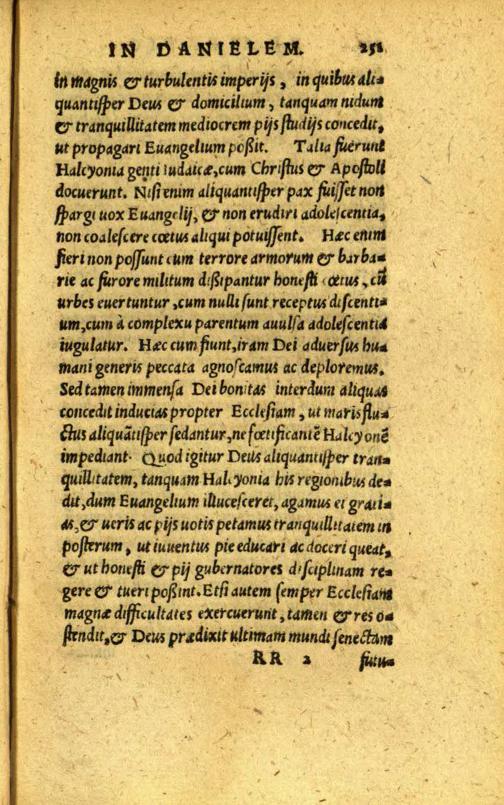 IN DANIELEM. 251
in magnis & turbulentis imperijs, in quibus ali-
quantisper Deus & domicilium, tanquam nidum
& tranquillitatem mediocrem pijs studijs concedit,
ut propagari Euangelium poßit. Talia fuerunt
Halcyonia genti Iudaicæ, cum Christus & Apostoli
docuerunt. Nisi enim aliquantisper pax fuisset non
spargi uox Euangelij, & non erudiri adolescentia,
non coalescere cœtus aliqui potuissent. Hæc enim
fieri non possunt cum terrore armorum & barba-
rie ac furore militum dißipantur honesti cœtus, cū
urbes euertuntur, cum nulli sunt receptus discenti-
um, cum à complexu parentum auulsa adolescentia
iugulatur. Hæc cum fiunt, iram Dei aduersus hu-
mani generis peccata agnoscamus ac deploremus.
Sed tamen immensa Dei bonitas interdum aliquas
concedit inducias propter Ecclesiam, ut maris flu-
ctus aliquātisper sedantur, ne fœtificantē Halcyonē
impediant. Quod igitur Deus aliquantisper tran-
quillitatem, tanquam Halcyonia his regionibus de-
dit, dum Euangelium illucesceret, agamus ei grati-
as, & ueris ac pijs uotis petamus tranquillitatem in
posterum, ut iuuentus pie educari ac doceri queat,
& ut honesti & pij gubernatores disciplinam re-
gere & tueri poßint. Etsi autem semper Ecclesiam
magnæ difficultates exercuerunt, tamen & res o-
stendit, & Deus prædixit ultimam mundi senectam
RR 2 futu-